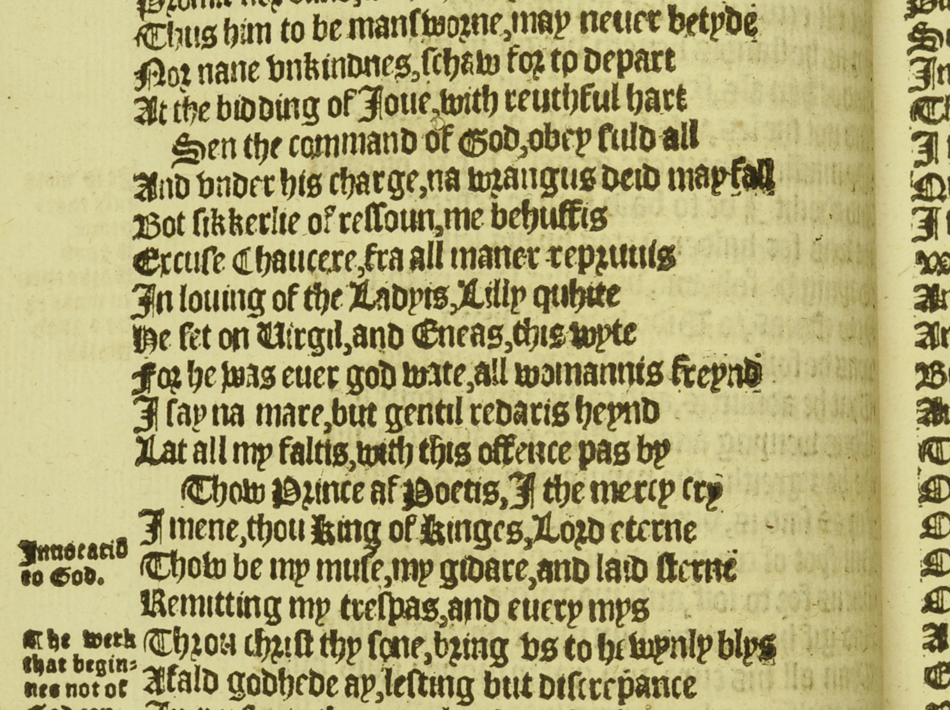 Thus him to be mansworne,may neuer betyde
Nor nane vnkindnes,schaw for to depart
At the bidding of Joue,with reuthful hart
Sen the command of God,obey suld all
And vnder his charge,na wrangus deid may fall
Bot sikkerlie of ressoun,me behuffis
Excuse Chaucere,fra all maner repruuis
In louing of the Ladyis,Lilly quhite
He set on Uirgil,and Eneas,this wyte
For he was euer god wate,all womannis freynd
I say na mare,but gentil redaris heynd
Lat all my faltis,with this offence pas by
Thow Prince af Poetis,I the mercy cry
I mene,thou King of Kinges,Lord eterne
Inuocatiō
to God.
Thow be my muse,my gidare,and laid sterne
Remitting my trespas,and euery mys
The werk
that begin-
nes not of
Throu christ thy sone,bring vs to hewynly blys
Afald godhede ay,lesting but discrepance